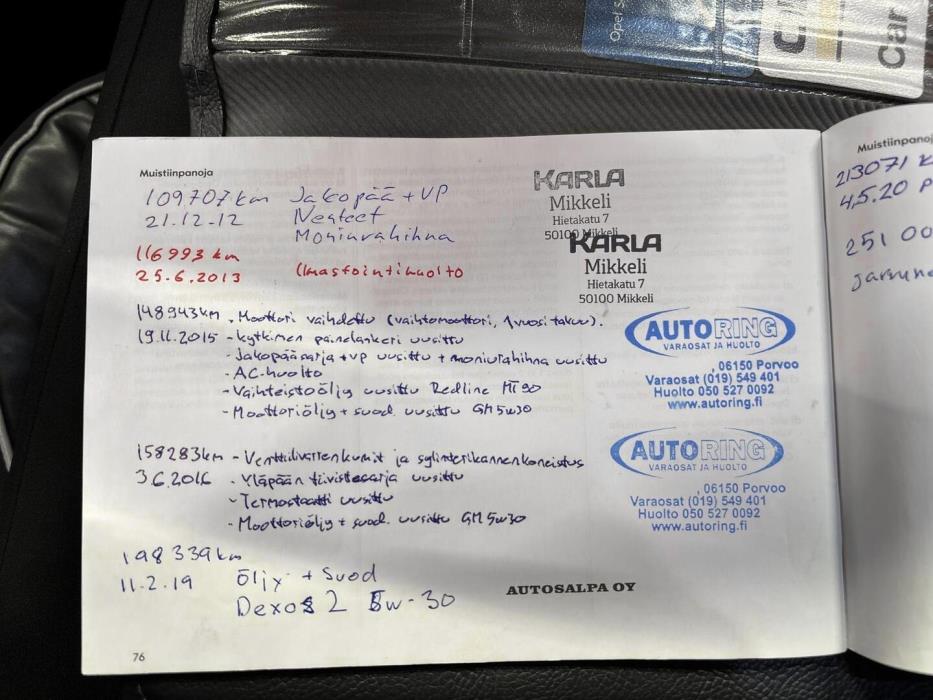 Opel S
Car
Muistiinpanoja
109707 km Jakopää + VP
21.12.12 Nesteet
Moniurahihna
KARLA
Mikkeli
Hietakatu 7
50100 Mikkeli
116993 km
25.6.2013 Ilmastointihuolto
KARLA
Mikkeli
Hietakatu 7
50100 Mikkeli
148943km - Moottori vaihdettu (vaihtomoottori, 1 vuosi takuu).
19.11.2015 - kytkimen painelaakeri uusittu
- Jakopääsarja + vp uusittu + moniurahihna uusittu
- AC-huolto
- Vaihteistoöljy uusittu Redline MT90
- Moottoriöljy + suod. uusittu GM 5w30
AUTORING
VARAOSAT JA HUOLTO
, 06150 Porvoo
Varaosat (019) 549 401
Huolto 050 527 0092
www.autoring.fi
158283km - Venttiilivarrenkumit ja sylinterikannenkoneistus
3.6.2016 - Yläpään tiivistesarja uusittu
- Termostaatti uusittu
- Moottoriöljy + suod. uusittu GM 5w30
AUTORING
VARAOSAT JA HUOLTO
, 06150 Porvoo
Varaosat (019) 549 401
Huolto 050 527 0092
www.autoring.fi
198339km
11.2.19 Öljy + Suod
Dexos 2 5w-30
AUTOSALPA OY
76
Muistiinpano
213071 k
4.5.20 P
251 00